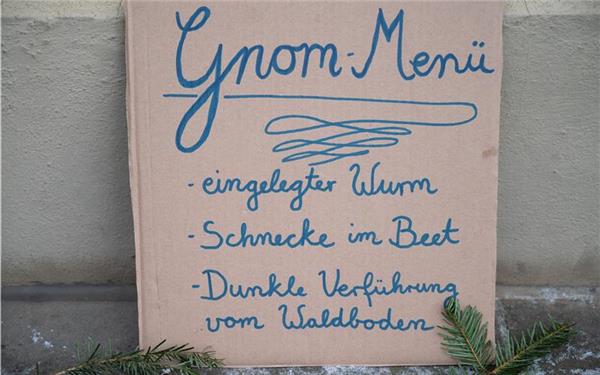 Gnom-Menü
- eingelegter Wurm
- Schnecke im Beet
- Dunkle Verführung
vom Waldboden